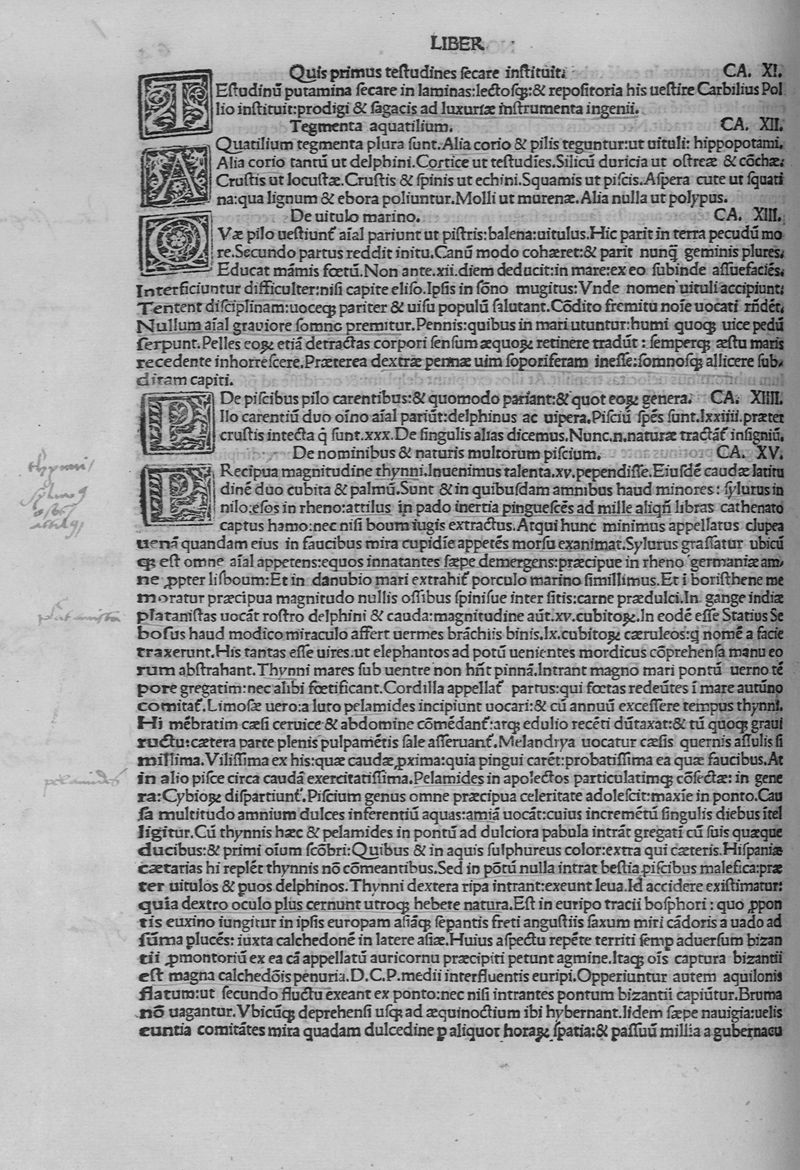 LIBER
Quis primus testudines secare instituit. CA. XI.
TEstudinū putamina secare in laminas:lectosq;:& repositoria his uestire Carbilius Pol
lio instituit:prodigi & sagacis ad luxuriæ instrumenta ingenii.
Tegmenta aquatilium. CA. XII.
AQuatilium tegmenta plura sunt. Alia corio & pilis teguntur:ut uituli: hippopotami.
Alia corio tantū ut delphini. Cortice ut testudīes. Silicū duricia ut ostreæ & cōchæ.
Crustis ut locustæ. Crustis & spinis ut echini. Squamis ut piscis. Aspera cute ut squati
na:qua lignum & ebora poliuntur. Molli ut murenæ. Alia nulla ut polypus.
De uitulo marino. CA. XIII.
QVæ pilo uestiunt᷑ aīal pariunt ut pistris:balena:uitulus. Hic parit in terra pecudū mo
re. Secundo partus reddit initu. Canū modo cohæret:& parit nunq̄ geminis plures.
Educat māmis fœtū. Non ante.xii.diem deducit:in mare:ex eo subinde assuefaciēs.
Interficiuntur difficulter:nisi capite eliso. Ipsis in sōno mugitus: Vnde nomen uituli accipiunt:
Tentent disciplinam:uoceq; pariter & uisu populū salutant. Cōdito fremitu noīe uocati rn̄dēt.
Nullum aīal grauiore somno premitur. Pennis:quibus in mari utuntur:humi quoq; uice pedū
serpunt. Pelles eoꝝ etiā detractas corpori sensum æquoꝝ retinere tradūt: semperq; æstu maris
recedente inhorrescere. Præterea dextræ pennæ uim soporiferam inesse:somnosq; allicere sub‐
diram capiti.
De piscibus pilo carentibus:& quomodo pariant:& quot eoꝝ genera. CA. XIIII.
PIlo carentiū duo oīno aīal pariūt:delphinus ac uipera. Pisciū spēs sunt.lxxiiii.præter
crustis intecta q̄ sunt.xxx. De singulis alias dicemus. Nunc.n.naturæ tractāt᷑ insigniū.
De nominibus & naturis multorum piscium. CA. XV.
PRecipua magnitudine thynni. Inuenimus talenta.xv.pependisse. Eiusdē caudæ latitu
dinē duo cubita & palmū. Sunt & in quibusdam amnibus haud minores: sylurus in
nilo:esos in rheno:attilus in pado inertia pinguescēs ad mille aliqn̄ libras cathenato
captus hamo:nec nisi boum iugis extractus. Atqui hunc minimus appellatus clupea
uenā quandam eius in faucibus mira cupidīe appetēs morsu exanimat. Sylurus grassatur ubicū
q; est omne aīal appetens:equos innatantes sæpe demergens:præcipue in rheno germaniæ am
ne ꝓpter lisboum: Et in danubio mari extrahit᷑ porculo marino simillimus. Et i boristhene me
moratur præcipua magnitudo nullis ossibus spinisue inter sitis:carne prædulci. In gange indiæ
platanistas uocāt rostro delphini & cauda:magnitudine aūt.xv.cubitoꝝ. In eodē esse Statius Se
bosus haud modico miraculo affert uermes brāchiis binis.lx.cubitoꝝ cæruleos:q̄ nomē a facie
traxerunt. His tantas esse uires.ut elephantos ad potū uenientes mordicus cōprehensa manu eo
rum abstrahant. Thynni mares sub uentre non hn̄t pinnā. Intrant magno mari pontū uerno tē
pore gregatim:nec alibi fœtificant. Cordilla appellat᷑ partus:qui fœtas redeūtes ī mare autūno
comitat᷑. Limosæ uero:a luto pelamides incipiunt uocari:& cū annuū excessere tempus thynni.
Hi mēbratim cæsi ceruice & abdomine cōmēdant᷑:atq; edulio recēti dūtaxat:& tū quoq; graui
ructu:cætera parte plenis pulpamētis sale asseruant᷑. Melandrya uocatur cæsis quernis assulis si
millima. Vilissima ex his:quæ caudæ ꝓxima:quia pingui carēt:probatissima ea quæ faucibus. At
in alio pisce circa caudā exercitatissima. Pelamides in apolectos particulatimq; cōsectæ: in gene
ra: Cybioꝝ dispartiunt᷑. Piscium genus omne præcipua celeritate adolescit:maxīe in ponto. Cau
sa multitudo amnium dulces inferentiū aquas:amiā uocāt:cuius incremētū singulis diebus ītel
ligitur. Cū thynnis hæc & pelamides in pontū ad dulciora pabula intrāt gregati cū suis quæque
ducibus:& primi oīum scōbri: Quibus & in aquis sulphureus color:extra qui cæteris. Hispaniæ
cætarias hi replēt thynnis nō cōmeantibus. Sed in pōtū nulla intrat bestia piscibus malefica:præ
ter uitulos & puos delphinos. Thynni dextera ripa intrant:exeunt leua. Id accidere existimatur:
quia dextro oculo plus cernunt utroq; hebete natura. Est in euripo tracii bosphori: quo ꝓpon
tis euxino iungitur in ipsis europam asiāq; sepantis freti angustiis saxum miri cādoris a uado ad
sūma plucēs: iuxta calchedonē in latere asiæ. Huius aspectu repēte territi semꝑ aduersum bizan
tii ꝓmontoriū ex ea cā appellatū auricornu præcipiti petunt agmine. Itaq; oīs captura bizantii
est magna calchedōis penuria. D. C. P. medii interfluentis euripi. Opperiuntur autem aquilonis
flatum:ut secundo fluctu exeant ex ponto:nec nisi intrantes pontum bizantii capiūtur. Bruma
nō uagantur. Vbicūq; deprehensi usq; ad æquinoctium ibi hybernant. Iidem sæpe nauigia:uelis
euntia comitātes mira quadam dulcedine ꝑ aliquot horaꝝ spatia:& passuū millia a gubernacu
thynni
platanista
pelamides